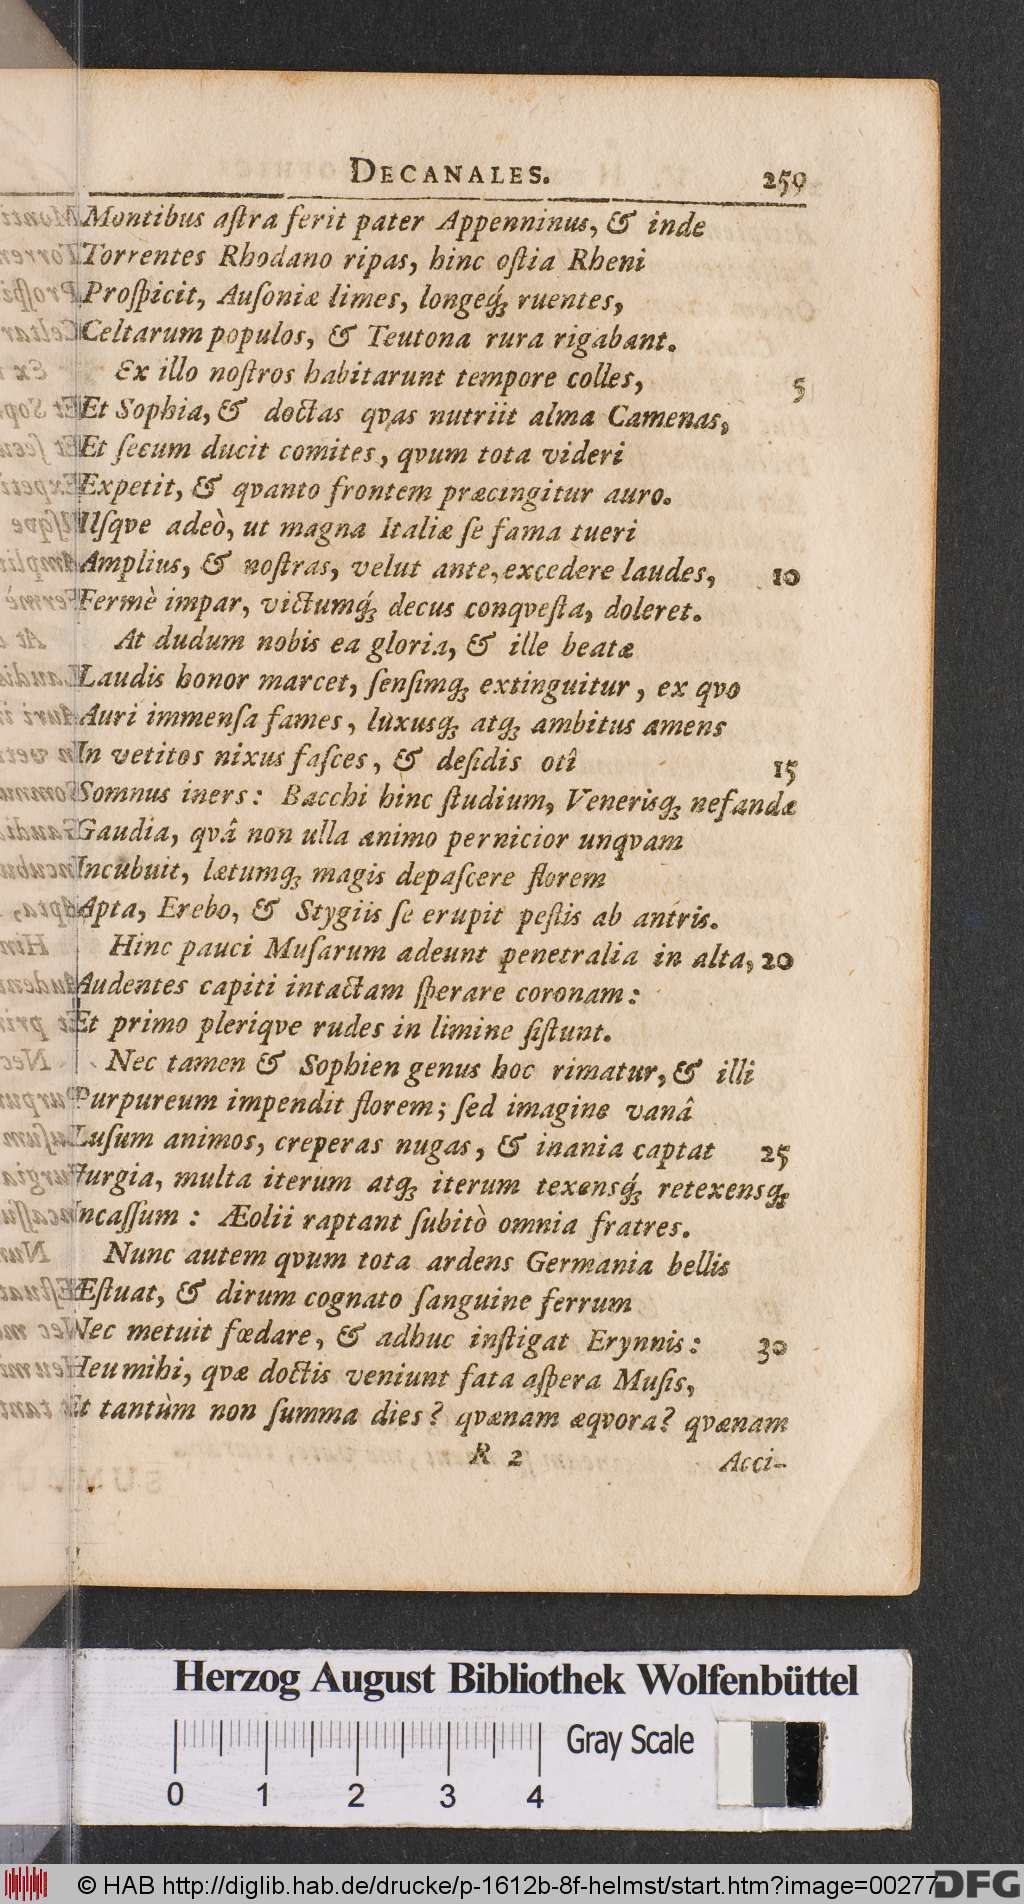 DECANALES. 259
Montibus aſtra ferit pater Appenninus, & inde
Torrentes Rhodano ripas, hinc oſtia Rheni
Proſpicit, Auſoniæ limes, longeq́; ruentes,
Celtarum populos, & Teutona rura rigabant.
Ex illo noſtros habitarunt tempore colles, 5
Et Sophia, & doctas qvas nutriit alma Camenas,
Et ſecum ducit comites, qvum tota videri
Expetit, & qvanto frontem præcingitur auro.
Uſqve adeò, ut magna Italiæ ſe fama tueri
Amplius, & noſtras, velut ante, excedere laudes, 10
Fermè impar, victumq́; decus conqveſta, doleret.
At dudum nobis ea gloria, & ille beatæ
Laudis honor marcet, ſenſimq; extinguitur, ex qvo
Auri immenſa fames, luxusq; atq; ambitus amens
In vetitos nixus faſces, & deſidis otî 15
Somnus iners: Bacchi hinc ſtudium, Venerisq; nefandæ
Gaudia, qvâ non ulla animo pernicior unqvam
Incubuit, lætumq; magis depaſcere florem
Apta, Erebo, & Stygiis ſe erupit peſtis ab antris.
Hinc pauci Muſarum adeunt penetralia in alta, 20
Audentes capiti intactam ſperare coronam:
Et primo pleriqve rudes in limine ſiſtunt.
Nec tamen & Sophien genus hoc rimatur, & illi
Purpureum impendit florem; ſed imagine vanâ
Luſum animos, creperas nugas, & inania captat 25
Jurgia, multa iterum atq; iterum texensq́; retexensq;
Incaſſum: Æolii raptant ſubitò omnia fratres.
Nunc autem qvum tota ardens Germania bellis
Æſtuat, & dirum cognato ſanguine ferrum
Nec metuit fœdare, & adhuc inſtigat Erynnis: 30
Heu mihi, qvæ doctis veniunt fata aſpera Muſis,
Et tantùm non ſumma dies? qvænam æqvora? qvænam
R 2 Acci-
Herzog August Bibliothek Wolfenbüttel
Gray Scale
0 1 2 3 4
© HAB http://diglib.hab.de/drucke/p-1612b-8f-helmst/start.htm?image=00277
DFG